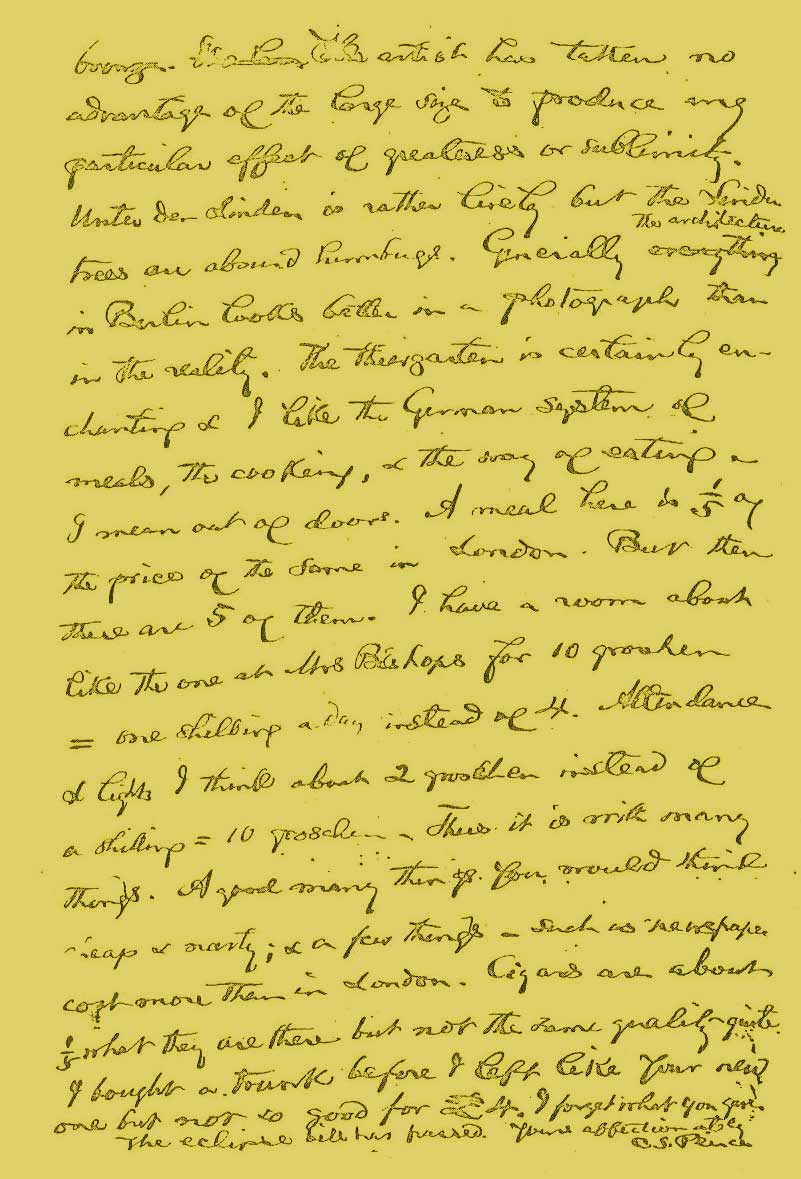 bronze. The artist has taken no
advantage of the large size to produce any
particular effect of greatness or sublimity.
Unter den Linden is rather lively but the linden
trees are absurd humbugs. Generally everything The architecture
in Berlin looks better in a photograph than
in the reality. The Thiergarten is certainly en-
chanting & I like the German system of
meals, the cooking, & the way of eating –
I mean out of doors. A meal here is 1/5 of
the price of the same in London. But then
there are 5 of them. I have a room about
like the one at Mrs Bishops for 10 groshen
= one shilling a day instead of 4. Attendance
& lights I think about 2 groschen instead of
a shilling = 10 groschen – Thus it is with many
things. A good many things you would think
cheap & nasty; & a few things – such as newspaper
cost more than in London. Cigars are about
1/5 what they are there but not the same quality quite.
I bought a trunk before I left like your new
one but not so good for £4. I forget what you gave.
The eclipse bill has passed. Yours affectionately
C.S. Peirce